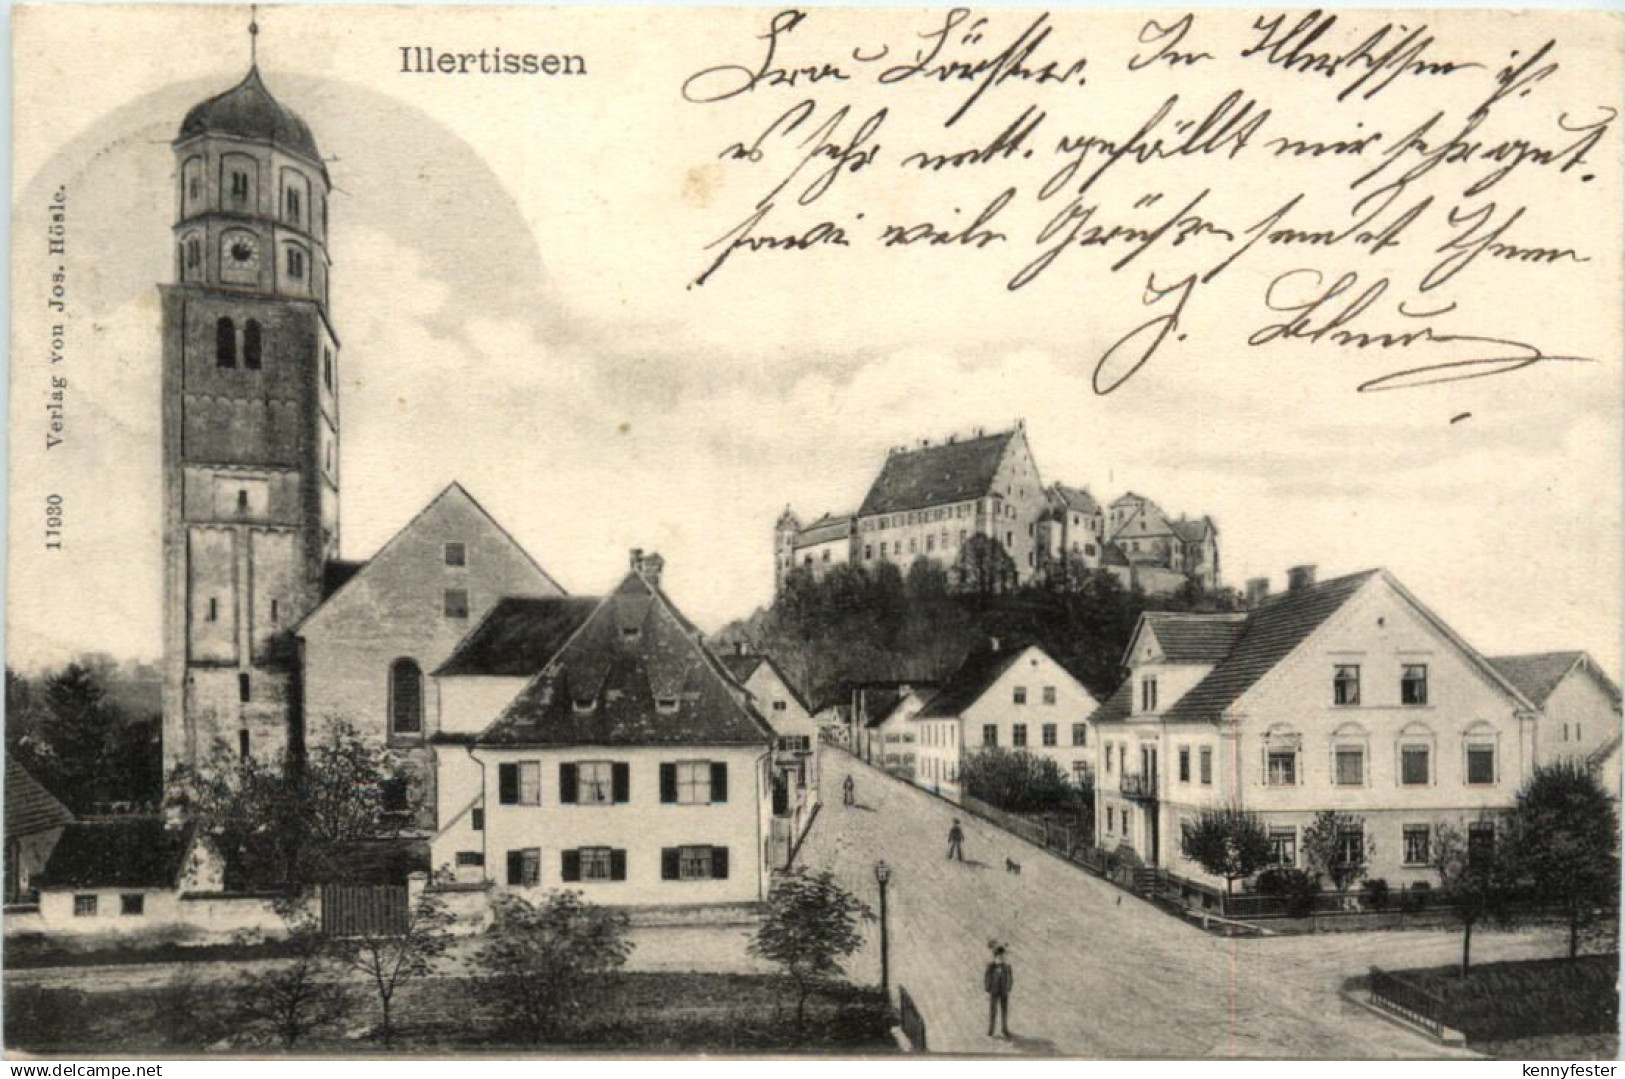 Illertissen
Frau Förster. In Illertissen ist
es sehr nett. gefällt mir sehr gut.
sowie viele Grüße sendet Ihnen
J.
11930 Verlag von Jos. Hösle.
delcampe.net
kennyfester